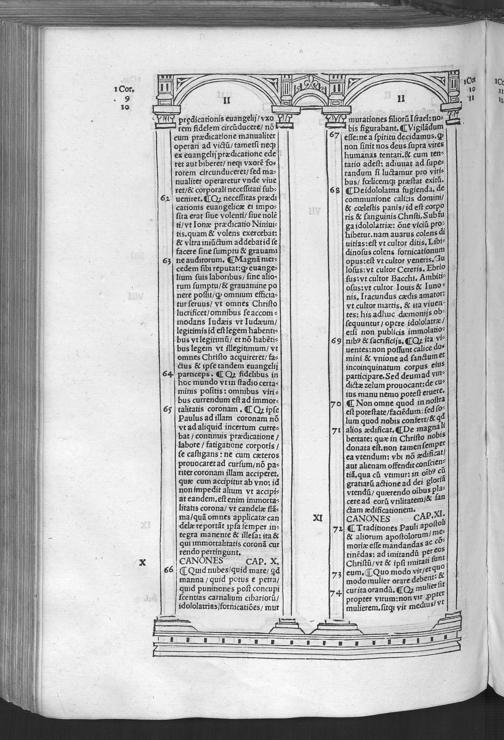 1 Cor.
9
10
II
prędicationis euangelij/ vxo
rem fidelem circūducere/ nō
eum prædicatione manualiter
operari ad victū/ tametsi neqȝ
ex euangelij prædicatione ede
ret aut biberet/ neqȝ vxorē so
rorem circunduceret/ sed ma-
nualiter operaretur vnde viue
ret/ & corporali necessitati sub-
62 ueniret. ¶ Qȝ necessitas prædi
cationis euangelicæ ei impo-
sita erat siue volenti/ siue nolē
ti/ vt Ionæ prædicatio Niniui-
tis. quam & volens exercebat:
& vltra iniūctum addebat id se
facere sine sumptu & grauami
63 ne auditorum. ¶ Magnā mer-
cedem sibi reputat: ꝙ euange-
lium suis laboribus/ sine alio-
rum sumptu/ & grauamine po
nere possit/ ꝙ omnium efficia-
tur seruus/ vt omnes Christo
lucrificet/ omnibus se accom-
modans Iudæis vt Iudæum/
legitimis id est legem habenti-
bus vt legitimū/ et nō habēti-
bus legem vt illegitimum/ vt
omnes Christo acquireret/ fa-
ctus & ipse tandem euangelij
64 particeps. ¶ Qȝ fidelibus in
hoc mundo vt in stadio certa-
minis positis: omnibus viri-
bus currendum est ad immor-
65 talitatis coronam. ¶ Qȝ ipse
Paulus ad illam coronam nō
vt ad aliquid incertum curre-
bat/ continuis prædicatione/
labore/ fatigatione corporis/
se castigans: ne cum cæteros
prouocaret ad cursum/ nō pa-
riter coronam illam acciperet.
quæ cum accipitur ab vno: id
non impedit alium vt accipi-
at eandem. est enim immorta-
litatis corona/ vt candelæ flā-
ma/ quā omnes applicatæ can
delæ reportāt ipsa semper in-
tegra manente & illesa: ita &
qui immortalitatis coronā cur
rendo pertingunt.
X
CANONES CAP. X.
66 ¶ Quid nubes/ quid mare/ qd
manna/ quid potus e petra/
quid punitiones post concupi
scentias carnalium cibariorū/
idololatrias/ fornicatiōes/ mur
1 Cor
10
11
II
murationes filiorū Israel: no-
bis figurabant. ¶ Vigilādum
67 esse: ne a spiritu decidamus. ꝙ
non sinit nos deus supra vires
humanas tentari. & cum ten-
tatio adest: adiuuat ad supe-
randum si luctamur pro viri-
bus/ fœlicemqȝ præstat exitū.
68 ¶ De idololatria fugienda, de
communione calicis domini/
& cœlestis panis/ id est corpo
ris & sanguinis Christi. Subfu
ga idololatriæ: ōne viciū pro-
hibetur. nam auarus colens di
uitias: est vt cultor ditis, Libi-
dinosus colens fornicationum
opus: est vt cultor veneris, Gu
losus: vt cultor Cereris, Ebrio
sus: vt cultor Bacchi. Ambiti-
osus: vt cultor Iouis & Iuno-
nis, Iracundus cædis amator:
vt cultor martis. & ita viuen-
tes: his adhuc dæmonijs ob-
sequuntur/ opere idololatræ/
etsi non publicis immolatio-
69 nibꝰ & sacrificijs. ¶ Qȝ ita vi-
uentes: non possunt calice do-
mini & vnione ad sanctum et
incoinquinatum corpus eius
participare. Sed deum ad vin-
dictæ zelum prouocant: de cu-
ius manu nemo potest eruere.
70 ¶ Non omne quod in nostra
est potestate/ faciēdum: sed so-
lum quod nobis confert/ & qd
71 alios ædificat. ¶ De magna li
bertate: quæ in Christo nobis
donata est. non tamen semper
ea vtendum: vbi nō ædificat/
aut alienam offendit conscien-
tiā. qua cū vtimur: in oībꝰ cū
gratiarū actione ad dei gloriā
vtendū/ quærendo oībus pla-
cere ad eorū vtilitatem/ & san
ctam ædificationem.
XI
CANONES CAP. XI.
72 ¶ Traditiones Pauli apostoli
& aliorum apostolorum/ me-
moriæ esse mandandas ac cō-
tinēdas: ad imitandū per eos
Christū/ vt & ipsi imitati sunt
73 eum. ¶ Quo modo vir/ et quo
modo mulier orare debent: &
74 curita orandū. ¶ Qȝ mulier sit
propter virum: non vir ꝓpter
mulierem, sitqȝ vir medius/ vt